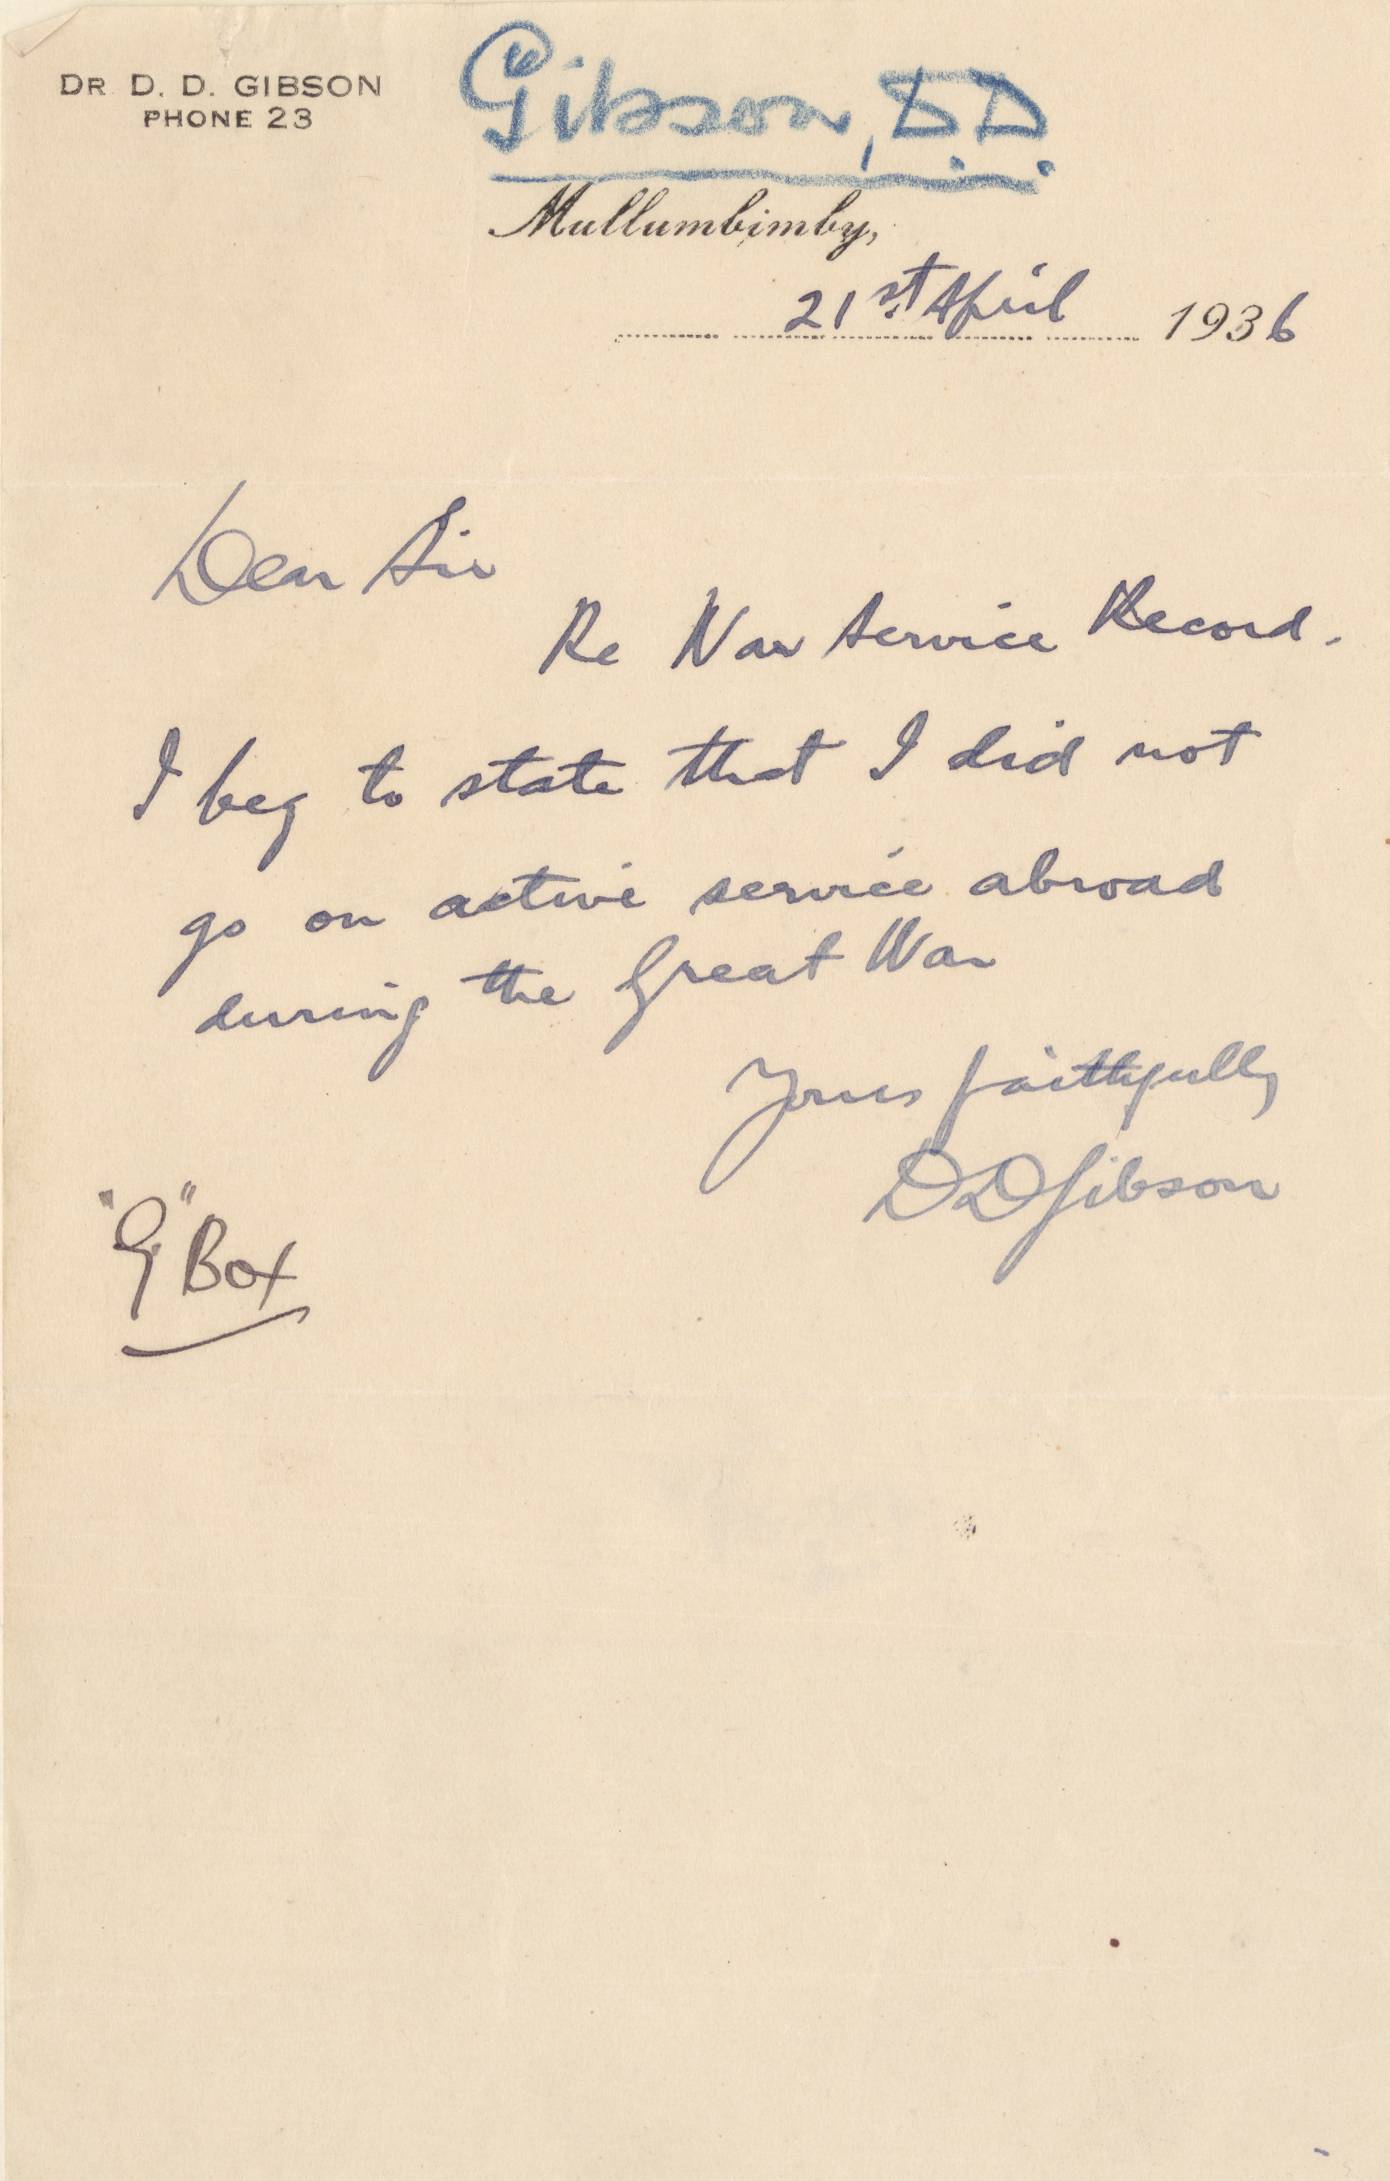 DR D. D. GIBSON
PHONE 23
Gibson, D.D.
Mullumbimby,
21st April 1936
Dear Sir
Re War Service Record.
I beg to state that I did not
go on active service abroad
during the Great War
Yours faithfully
DDGibson
"G" Box